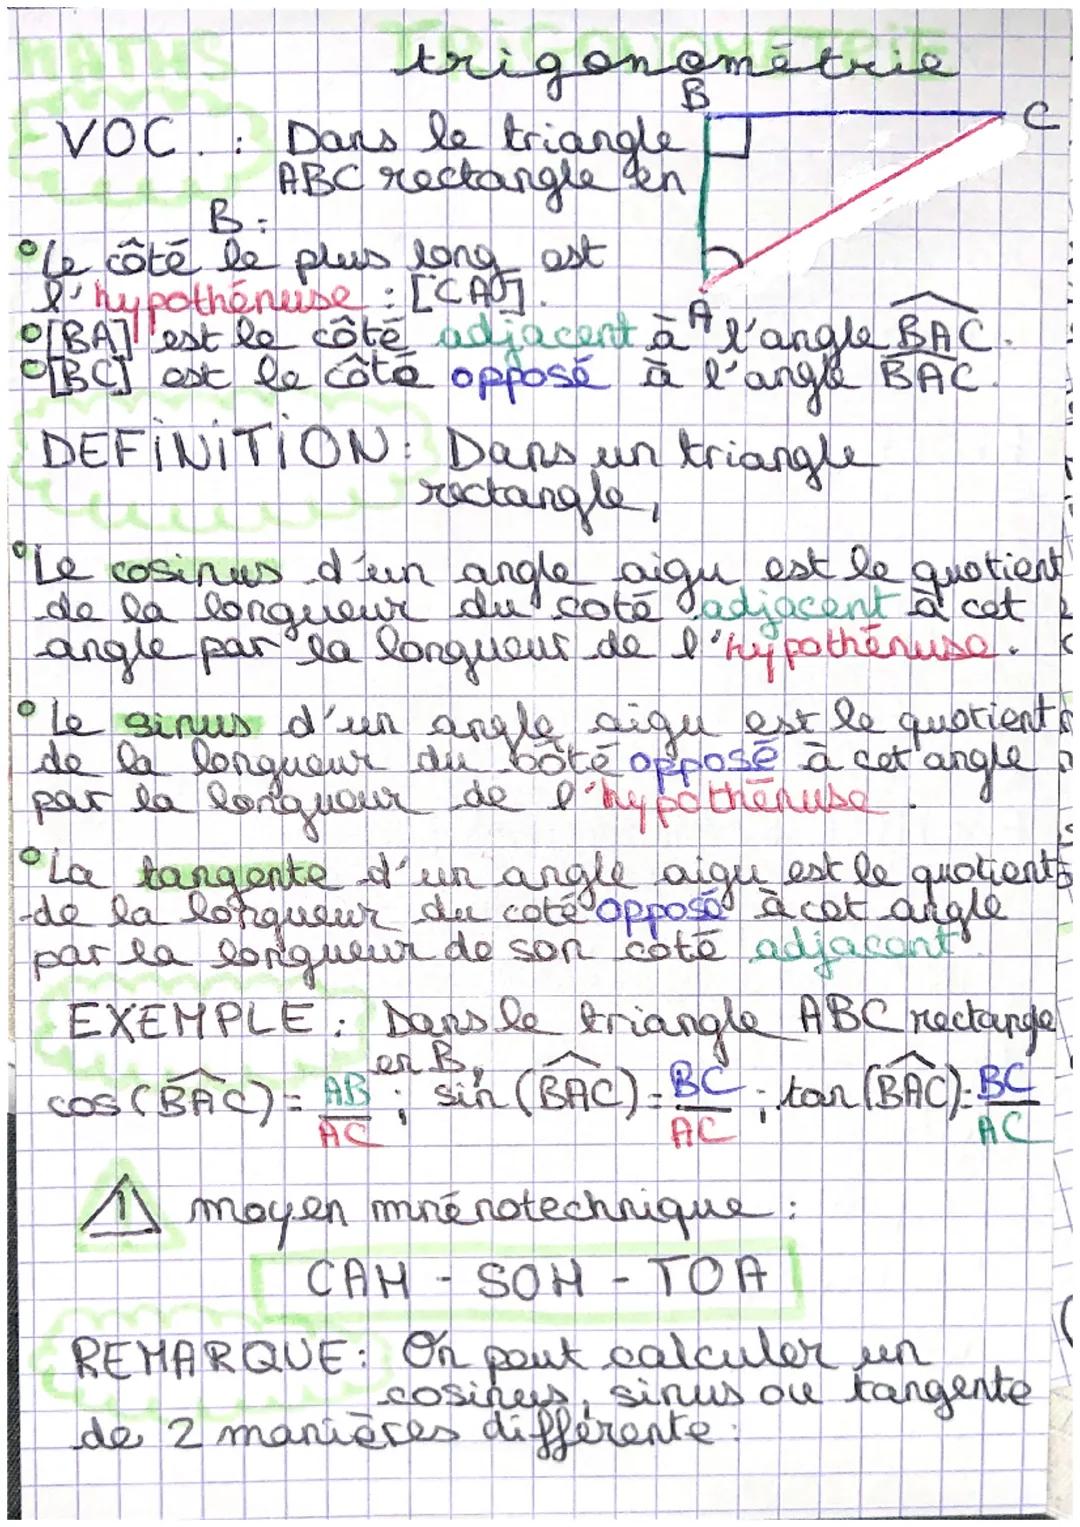 MATHS TRIGONOMÉTRIE
trigonométrie
B
C
A
VOC. : Dans le triangle
ABC rectangle en
B :
Le côté le plus long est
l'hypothénuse : [CA].
[BA] est le côté adjacent à l'angle BAC.
[BC] est le côté opposé à l'angle BAC.
DEFINITION : Dans un triangle
rectangle,
Le cosinus d'un angle aigu est le quotient
de la longueur du coté adjacent à cet
angle par la longueur de l'hypothénuse.
Le sinus d'un angle aigu est le quotient
de la longueur du côté opposé à cet angle
par la longueur de l'hypothénuse.
La tangente d'un angle aigu est le quotient
de la longueur du coté opposé à cet angle
par la longueur de son coté adjacent.
EXEMPLE : Dans le triangle ABC rectange
en B,
cos (BAC) = AB/AC ; sin (BAC) = BC/AC ; tan (BAC) = BC/AC
! moyen mnénotechnique :
CAH - SOH - TOA
REMARQUE : On peut calculer un
cosinus, sinus ou tangente
de 2 manières différente :